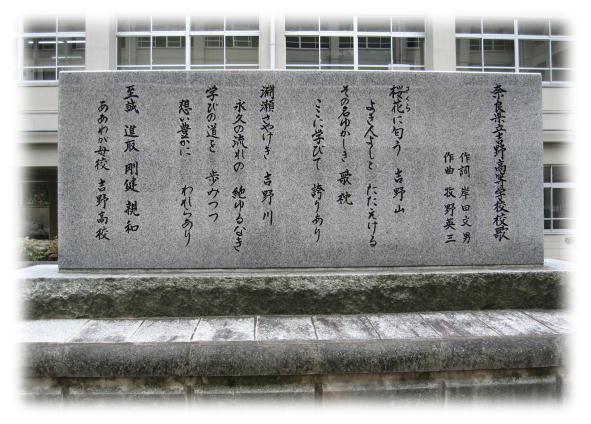 奈良県立吉野高等学校校歌
作詞 岸田文男
作曲 牧野英三
桜花に匂う 吉野山
さくら
よき人よしと たたえける
その名ゆかしき 歌枕
ここに学びて 誇りあり
淵瀬さやけき 吉野川
永久の流れの 絶ゆるなき
学びの道を 歩みつつ
想い豊かに われらあり
至誠 進取 剛健 親和
ああわが母校 吉野高校